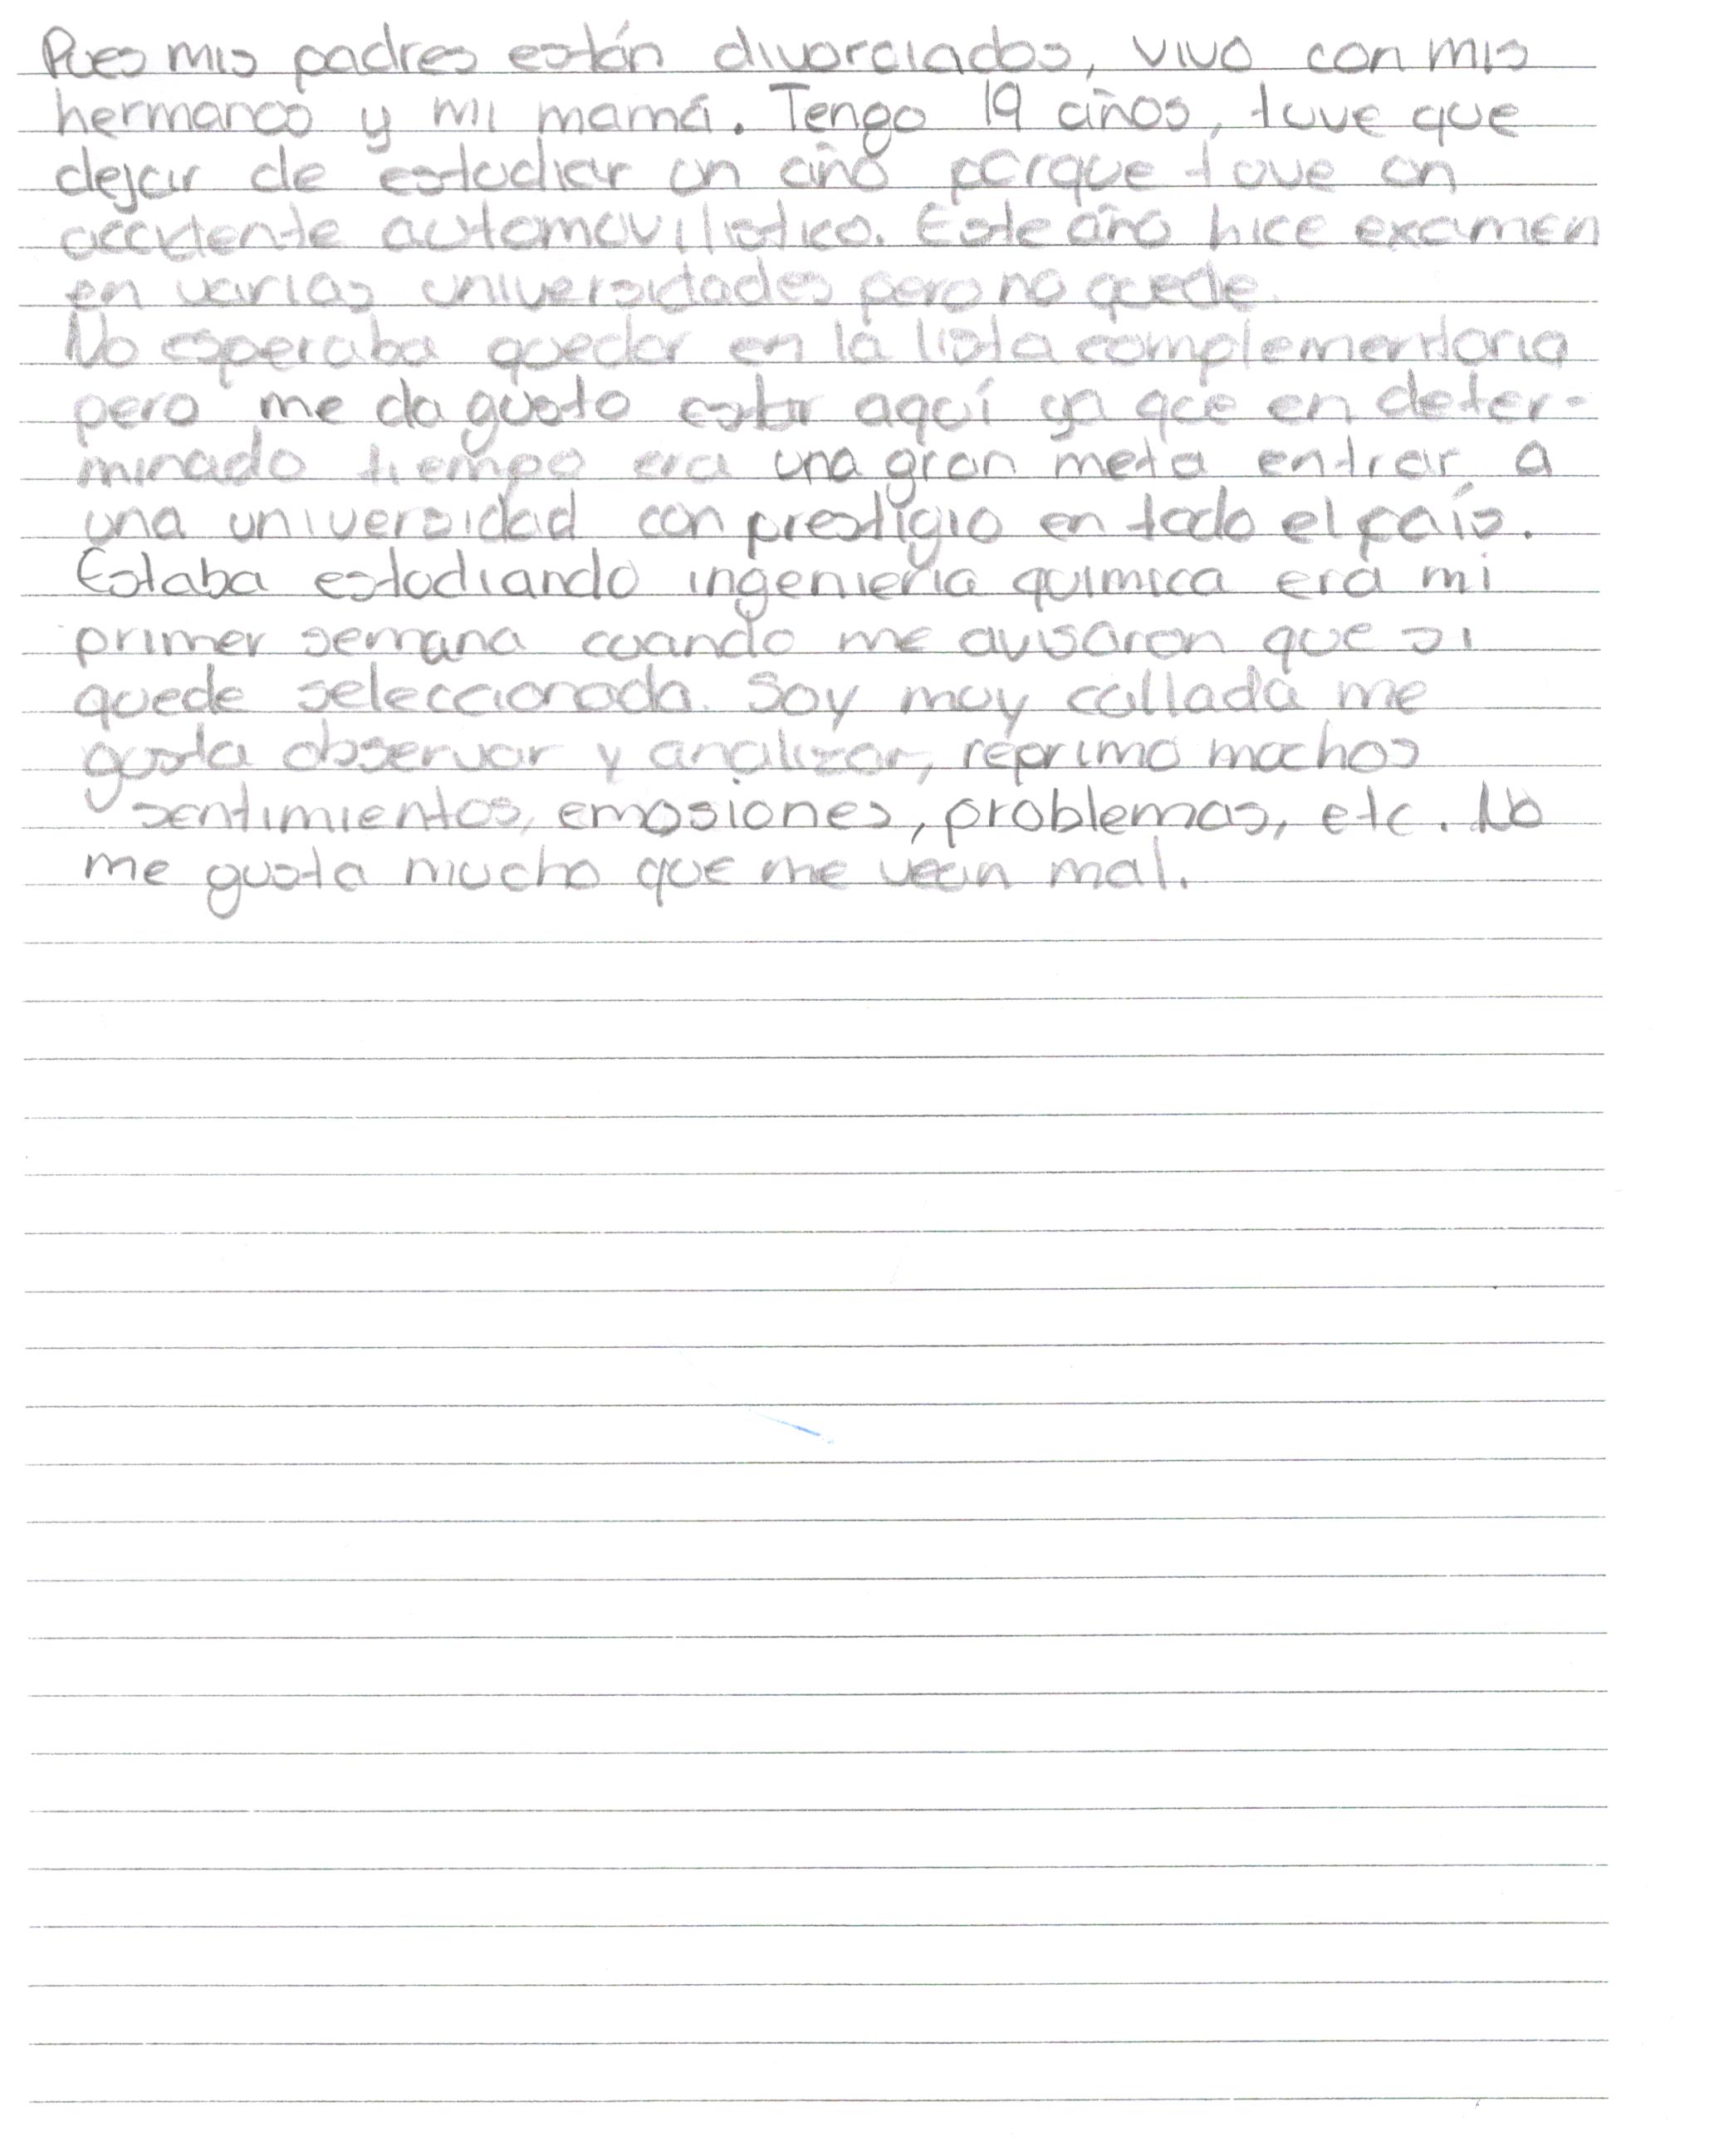 Pues mis padres están divorciados, vivo con mis
hermanos y mi mamá. Tengo 19 años, tuve que
dejar de estudiar un año porque tuve un
accidente automovilistico. Este año hice examen
en varias universidades pero no quede.
No esperaba quedar en la lista complementaria
pero me da gusto estar aquí ya que en deter-
minado tiempo era una gran meta entrar a
una universidad con prestigio en todo el país.
Estaba estudiando ingenieria quimica era mi
primer semana cuando me avisaron que si
quede seleccionada. Soy muy callada me
gusta observar y analizar, reprimo muchos
sentimientos, emosiones, problemas, etc. No
me gusta mucho que me vean mal.